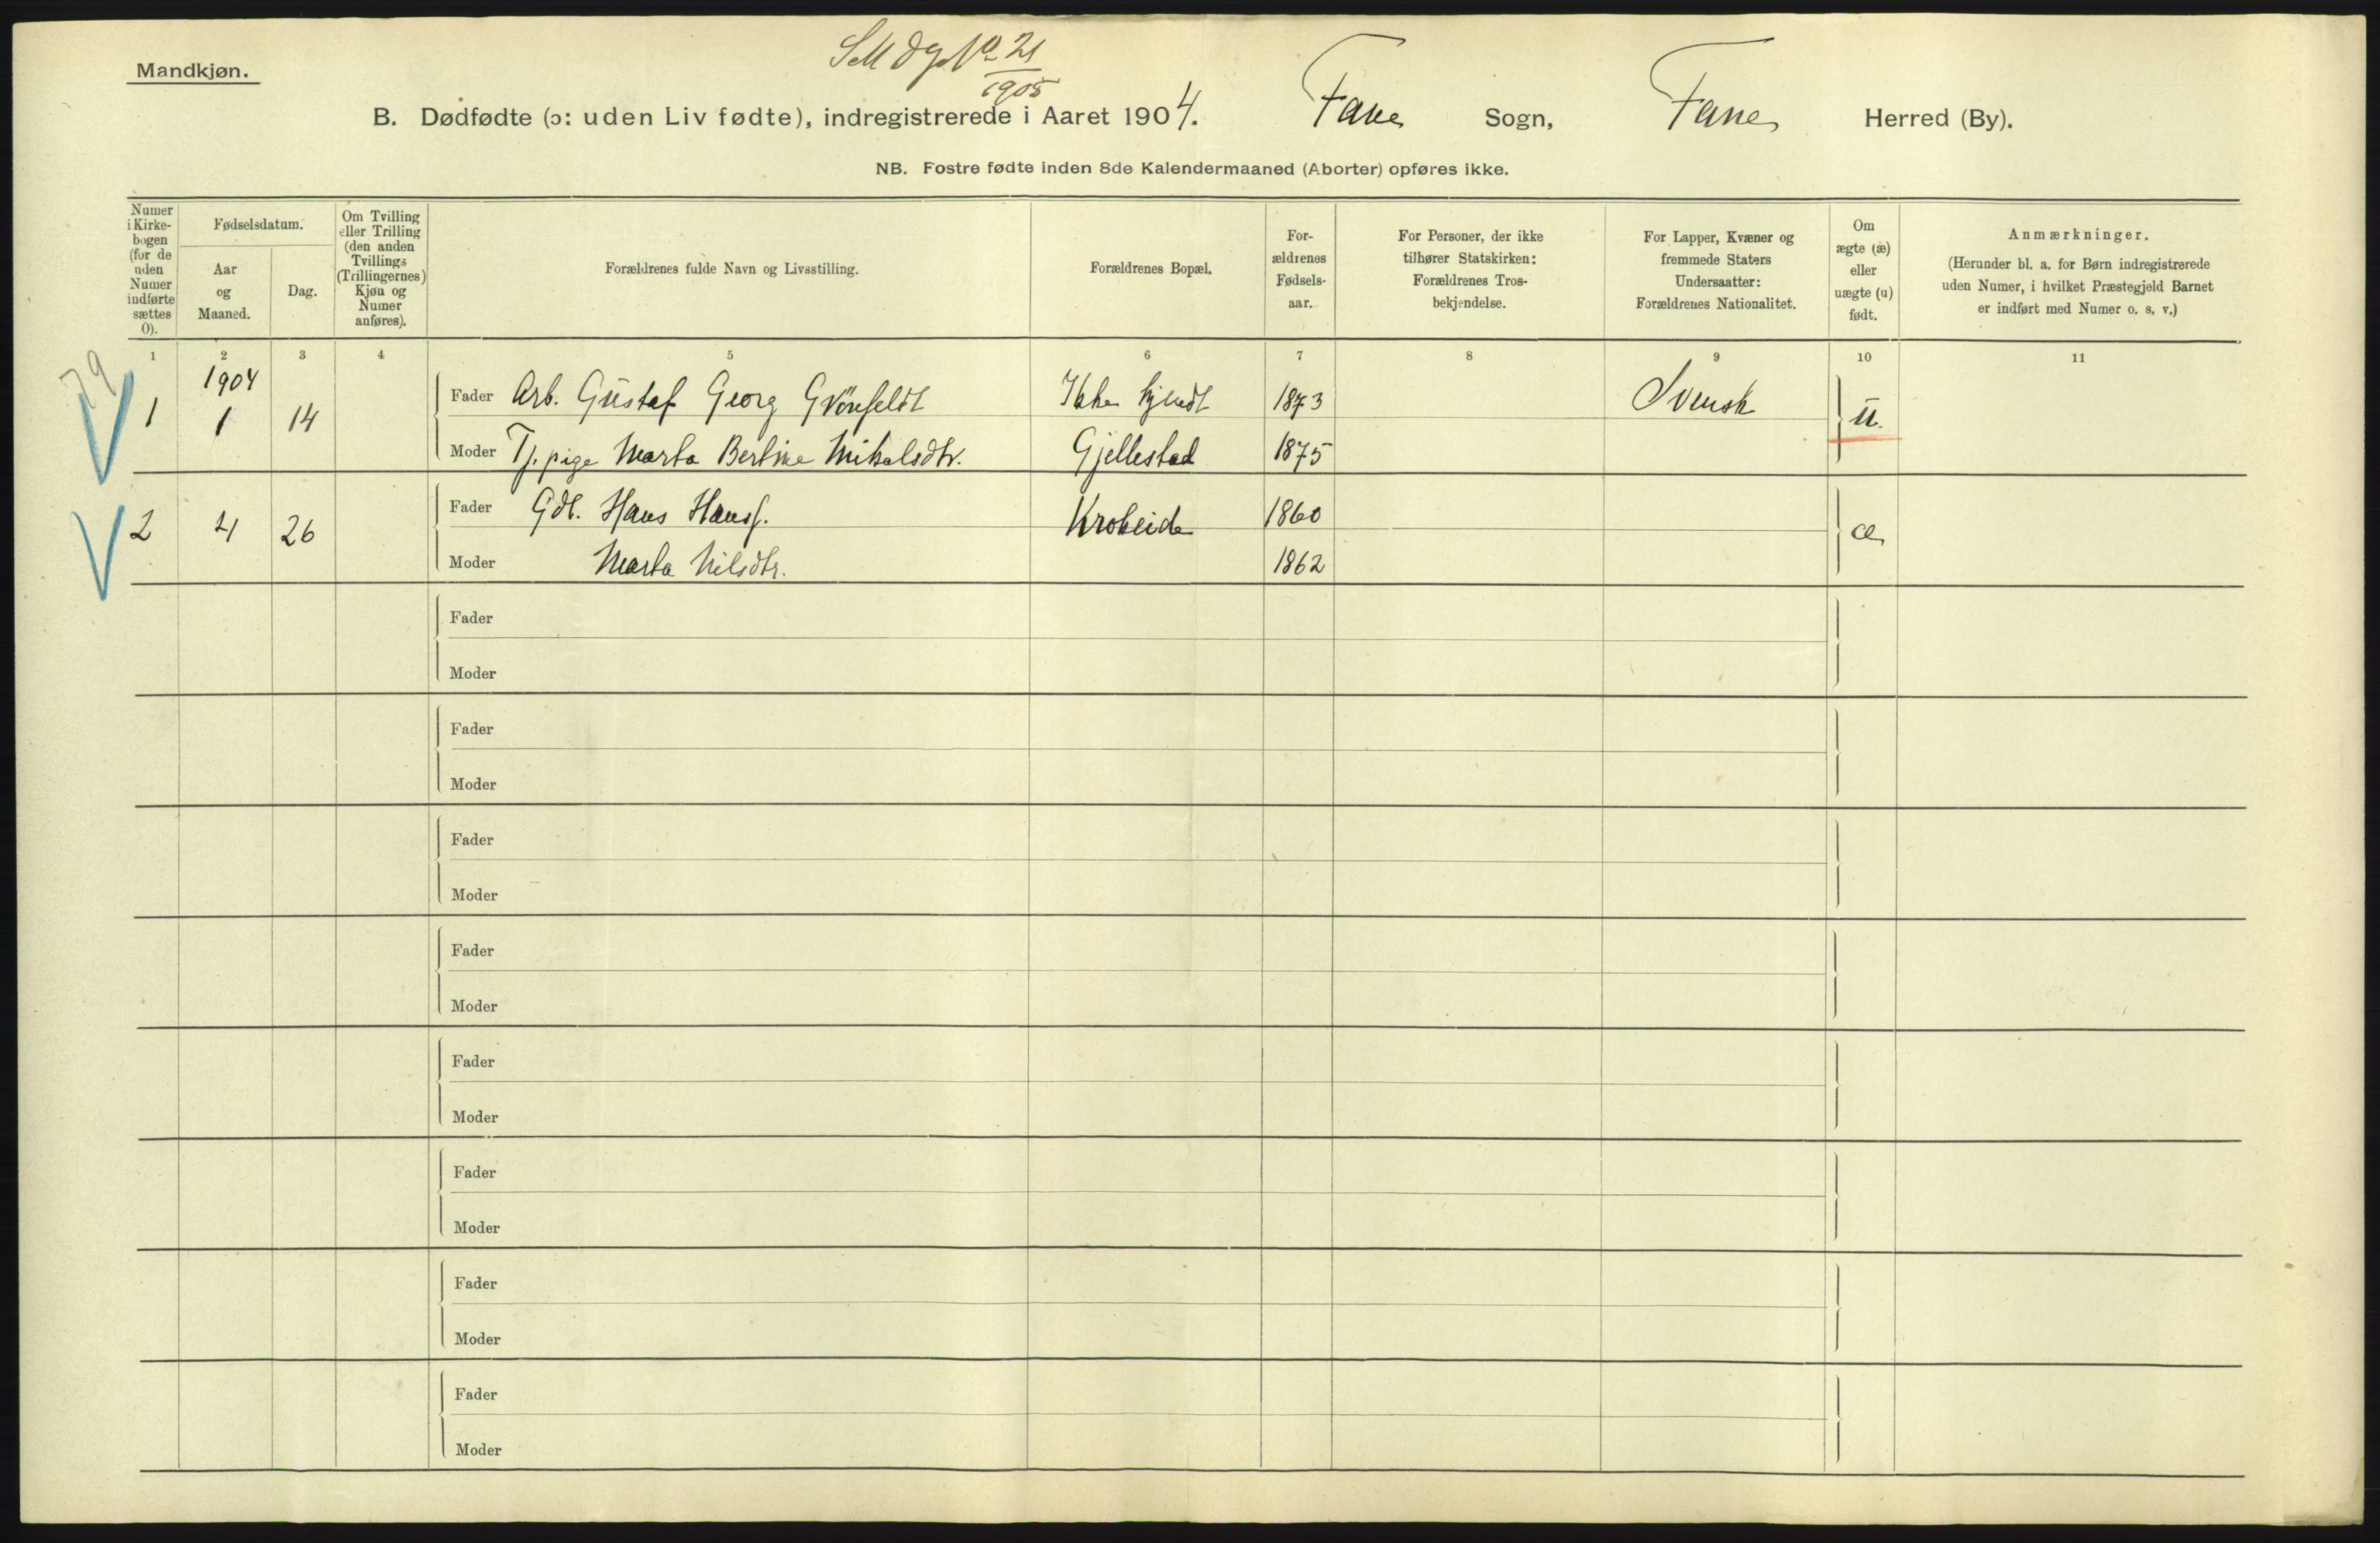 Mandkjøn.
No 21
1905
B. Dødfødte (ɔ: uden Liv fødte), indregistrerede i Aaret 1904. Fane Sogn, Fane Herred (By).
NB. Fostre fødte inden 8de Kalendermaaned (Aborter) opføres ikke.
Numer i Kirkebogen (for de uden Numer indførte sættes 0).
Fødselsdatum.
Aar og Maaned.
Dag.
Om Tvilling eller Trilling (den anden Tvillings (Trillingernes) Kjøn og Numer anføres).
Forældrenes fulde Navn og Livsstilling.
Forældrenes Bopæl.
Forældrenes Fødselsaar.
For Personer, der ikke tilhører Statskirken: Forældrenes Trosbekjendelse.
For Lapper, Kvæner og fremmede Staters Undersaatter: Forældrenes Nationalitet.
Om ægte (æ) eller uægte (u) født.
Anmærkninger.
(Herunder bl. a. for Børn indregistrerede uden Numer, i hvilket Præstegjeld Barnet er indført med Numer o. s. v.)
1 2 3 4 5 6 7 8 9 10 11
79
1904
1 1 14 Fader Arb. Gustaf Georg Grönfeldt Ikke kjendt 1873 Svensk u.
Moder Tj. pige Marta Bertine Mikalsdtr. Gjellestad 1875
2 4 26 Fader Gdl. Hans Hanss. Krokeide 1860 æ
Moder Marta Nilsdtr. 1862
Fader
Moder
Fader
Moder
Fader
Moder
Fader
Moder
Fader
Moder
Fader
Moder
Fader
Moder
Fader
Moder